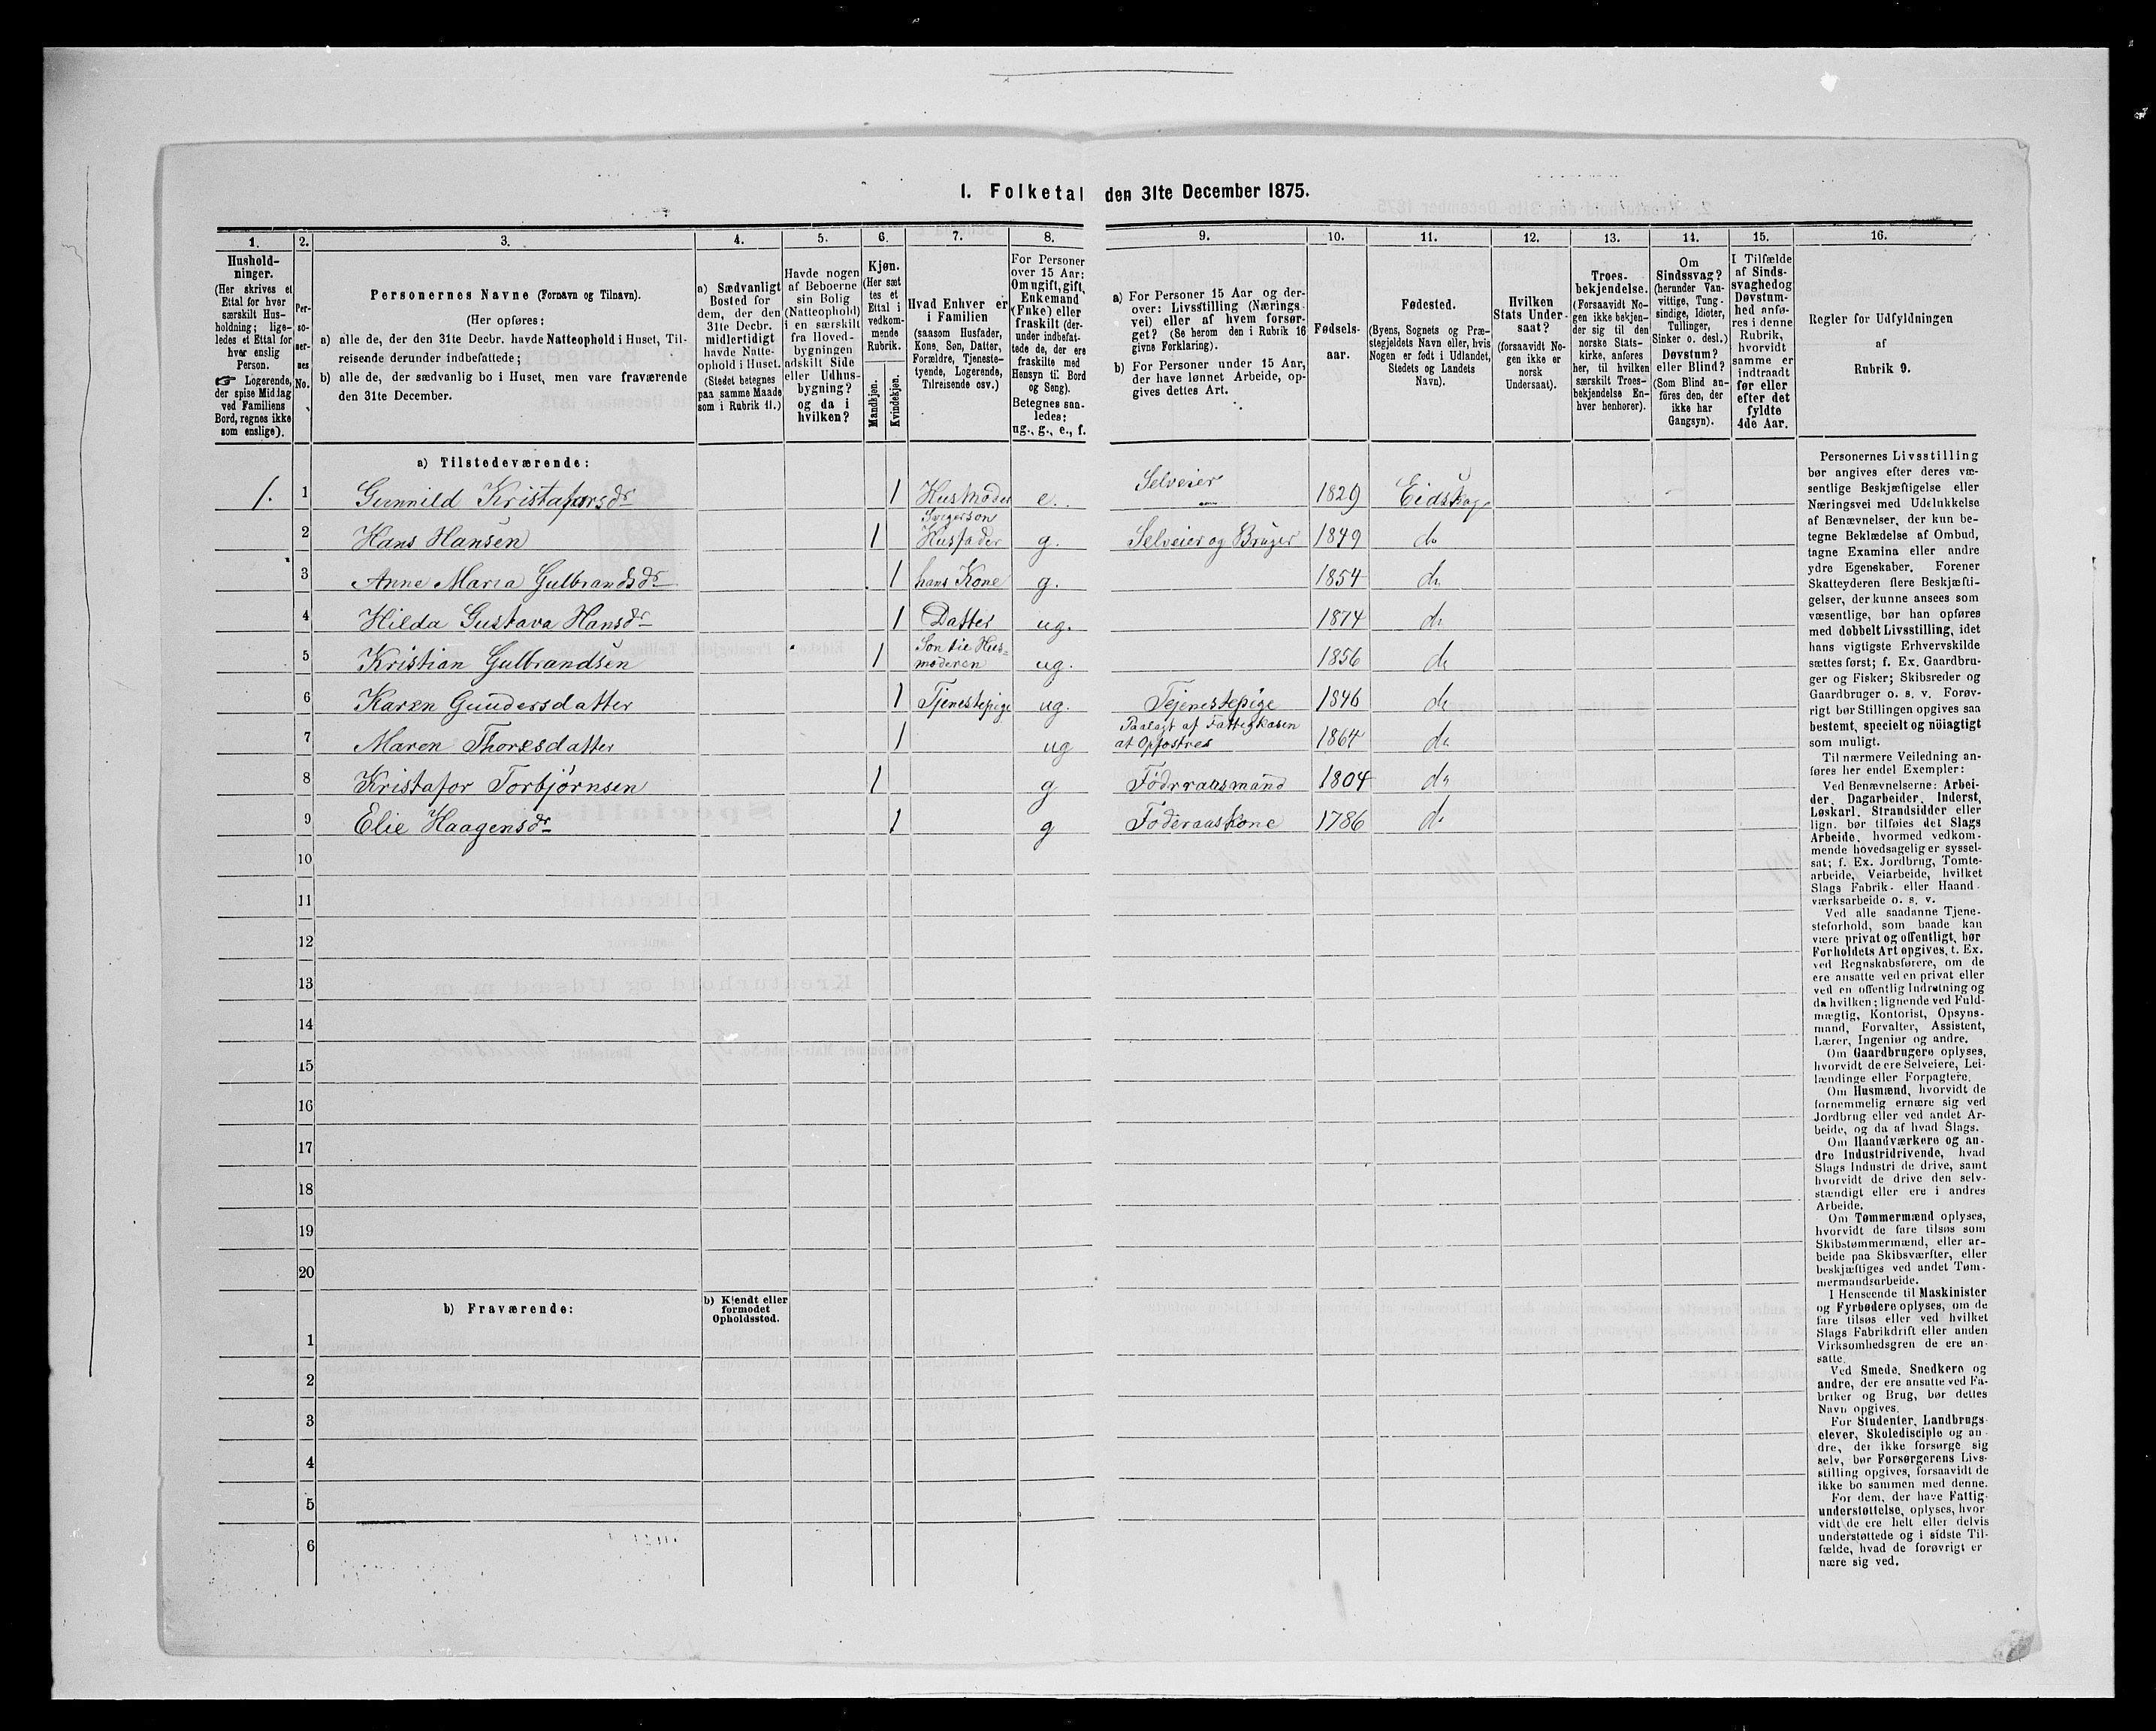 I. Folketal den 31te December 1875.
1. 2. 3. 4. 5. 6. 7. 8. 9. 10. 11. 12. 13. 14. 15. 16.
Hushold-
ninger.
(Her skrives et
Ettal for hver
særskilt Hus-
holdning; lige-
ledes et Ettal for
hver enslig
Person.
☞ Logerende,
der spise Middag
ved Familiens
Bord, regnes ikke
som enslige).
Per-
so-
ner-
nes
No.
Personernes Navne (Fornavn og Tilnavn).
(Her opføres:
a) alle de, der den 31te Decbr. havde Natteophold i Huset, Til-
reisende derunder indbefattede;
b) alle de, der sædvanlig bo i Huset, men vare fraværende
den 31te December.
a) Sædvanligt
Bosted for
dem, der den
31te Decbr.
midlertidigt
havde Natte-
ophold i Huset.
(Stedet betegnes
paa samme Maade
som i Rubrik 11.)
Havde nogen
af Beboerne
sin Bolig
(Natteophold)
i en særskilt
fra Hoved-
bygningen
adskilt Side
eller Udhus-
bygning?
og da i
hvilken?
Kjøn.
(Her sæt
tes et
Ettal i
vedkom-
mende
Rubrik.
Mandkjøn.
Kvindekjøn.
Hvad Enhver er
i Familien
(saasom Husfader,
Kone, Søn, Datter,
Forældre, Tjeneste-
tyende, Logerende,
Tilreisende osv.)
For Personer
over 15 Aar:
Om ugift, gift,
Enkemand
(Enke) eller
fraskilt (der-
under indbefat-
tede de, der ere
fraskilte med
Hensyn til Bord
og Seng).
Betegnes saa-
ledes:
ug., g., e., f.
a) For Personer 15 Aar og der-
over: Livsstilling (Nærings-
vei) eller af hvem forsør-
get? (Se herom den i Rubrik 16
givne Forklaring).
b) For Personer under 15 Aar,
der have lønnet Arbeide, op-
gives dettes Art.
Fødsels-
aar.
Fødested.
(Byens, Sognets og Præ-
stegjeldets Navn eller, hvis
Nogen er født i Udlandet,
Stedets og Landets
Navn).
Hvilken
Stats Under-
saat?
(forsaavidt No-
gen ikke er
norsk
Undersaat).
Troes-
bekjendelse.
(Forsaavidt No-
gen ikke bekjen-
der sig til den
norske Stats-
kirke, anføres
her, til hvilken
særskilt Troes-
bekjendelse En-
hver henhører).
Om
Sindssvag?
(herunder Van-
vittige, Tung-
sindige, Idioter,
Tullinger,
Sinker o. desl.)
Døvstum?
eller Blind?
(Som Blind an-
føres den, der
ikke har
Gangsyn).
I Tilfælde
af Sinds-
svaghed og
Døvstum-
hed anfø-
res i denne
Rubrik,
hvorvidt
samme er
indtraadt
før eller
efter det
fyldte
4de Aar.
Regler for Udfyldningen
af
Rubrik 9.
a) Tilstedeværende:
1. 1 Gunnild Kristaforsdr 1 Husmoder e. Selveier 1829 Eidskog
2 Hans Hansen 1 Svigerson Husfader g. Selveier og Bruger 1849 do
3 Anne Maria Gulbrandsdr 1 hans Kone g. 1854 do
4 Hilda Gustava Hansdr 1 Datter ug. 1874 do
5 Kristian Gulbrandsen 1 Son til Hus-
moderen ug. 1856 do
6 Karen Gundersdatter 1 Tjenestepige ug. Tejenestepige 1846 do
7 Maren Thoresdatter 1 ug Paalagt af Fattigkasen
at Opfostres 1864 do
8 Kristafor Torbjörnsen 1 g Födrraasmand 1804 do
9 Elie Haagensdr 1 g Föderaaskone 1786 do
10
11
12
13
14
15
16
17
18
19
20
b) Fraværende:
b) Kjendt eller
formodet
Opholdssted.
1
2
3
4
5
6
Personernes Livsstilling
bør angives efter deres væ-
sentlige Beskjæftigelse eller
Næringsvei med Udelukkelse
af Benævnelser, der kun be-
tegne Beklædelse af Ombud,
tagne Examina eller andre
ydre Egenskaber. Forener
Skatteyderen flere Beskjæfti-
gelser, der kunne ansees som
væsentlige, bør han opføres
med dobbelt Livsstilling, idet
hans vigtigste Erhvervskilde
sættes først; f. Ex. Gaardbru-
ger og Fisker; Skibsreder og
Gaardbruger o. s. v. Forøv-
rigt bør Stillingen opgives saa
bestemt, specielt og nöiagtigt
som muligt.
Til nærmere Veiledning an-
føres her endel Exempler:
Ved Benævnelserne: Arbei-
der, Dagarbeider, Inderst,
Løskarl, Strandsidder eller
lign. bør tilføies det Slags
Arbeide, hvormed vedkom-
mende hovedsagelig er syssel-
sat; f. Ex. Jordbrug, Tomte-
arbeide, Veiarbeide, hvilket
Slags Fabrik- eller Haand-
værksarbeide o. s. v.
Ved alle saadanne Tjene-
steforhold, som baade kan
være privat og offentligt, bør
Forholdets Art opgives, f. Ex.
ved Regnskabsførere, om de
ere ansatte ved en privat eller
ved en offentlig Indretning og
da hvilken; lignende ved Fuld-
mægtig, Kontorist, Opsyns-
mand, Forvalter, Assistent,
Lærer, Ingeniør og andre.
Om Gaardbrugere oplyses,
hvorvidt de ere Selveiere, Lei-
lændinge eller Forpagtere.
Om Husmænd, hvorvidt de
fornemmelig ernære sig ved
Jordbrug eller ved andet Ar-
beide, og da af hvad Slags.
Om Haandværkere og an-
dre Industridrivende, hvad
Slags Industri de drive, samt
hvorvidt de drive den selv-
stændigt eller ere i andres
Arbeide.
Om Tømmermænd oplyses,
hvorvidt de fare tilsøs som
Skibstømmermænd, eller ar-
beide paa Skibsværfter, eller
beskjæftiges ved andet Tøm-
mermandsarbeide.
I Henseende til Maskinister
og Fyrbødere oplyses, om de
fare tilsøs eller ved hvilket
Slags Fabrikdrift eller anden
Virksomhedsgren de ere an-
satte.
Ved Smede, Snedkere og
andre, der ere ansatte ved Fa-
briker og Brug, bør dettes
Navn opgives.
For Studenter, Landbrugs-
elever, Skoledisciple og an-
dre, der ikke forsørge sig
selv, bør Forsørgerens Livs-
stilling opgives, forsaavidt de
ikke bo sammen med denne.
For dem, der have Fattig-
understøttelse, oplyses, hvor-
vidt de ere helt eller delvis
understøttede og i sidste Til-
fælde, hvad de forøvrigt er
nære sig ved.